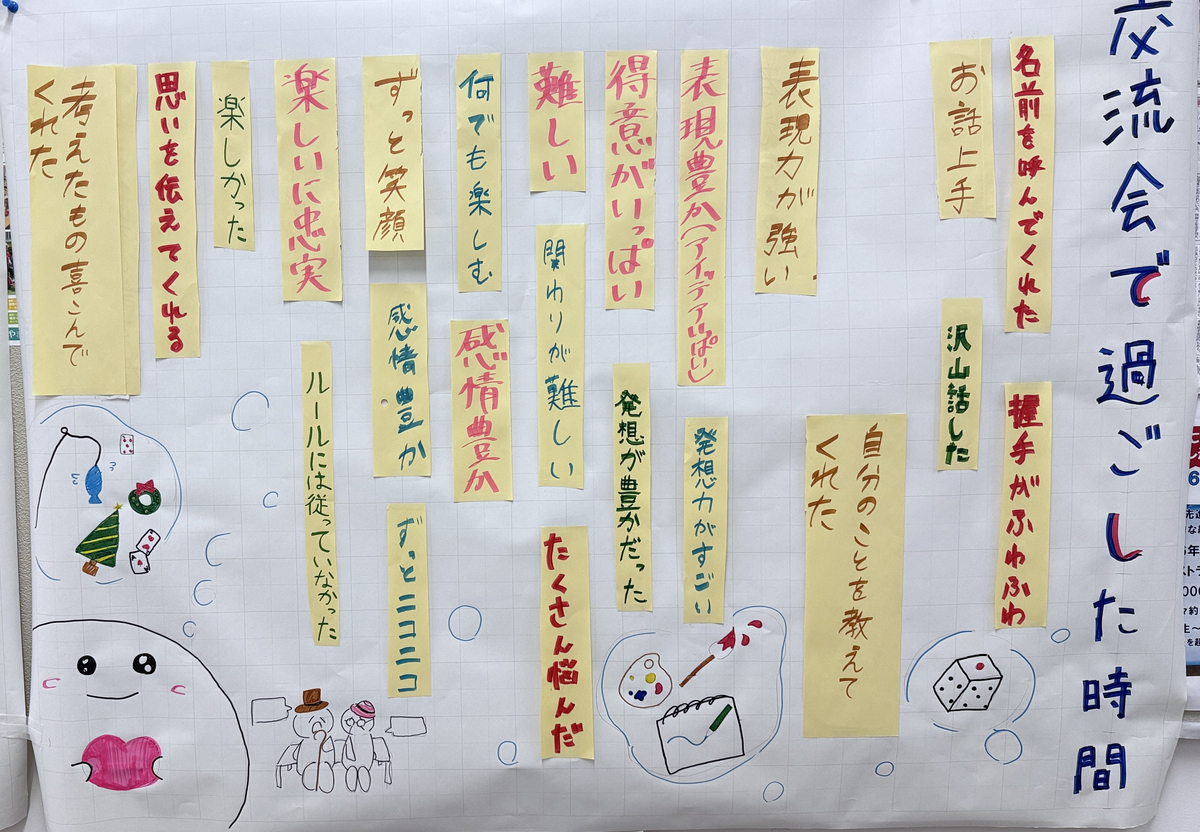 交流会で過ごした時間
名前を呼んでくれた
握手がふわふわ
お話上手
沢山話した
自分のことを教えて
くれた
表現力が強い
表現豊か(アイッデアいぱい)
発想力がすごい
得意がいっぱい
発想が豊かだった
難しい
関わりが難しい
たくさん悩んだ
何でも楽しむ
感情豊か
ずっと笑顔
感情豊か
ずっとニコニコ
楽しいに忠実
ルールには従っていなかった
楽しかった
思いを伝えてくれる
考えたもの喜こんで
くれた